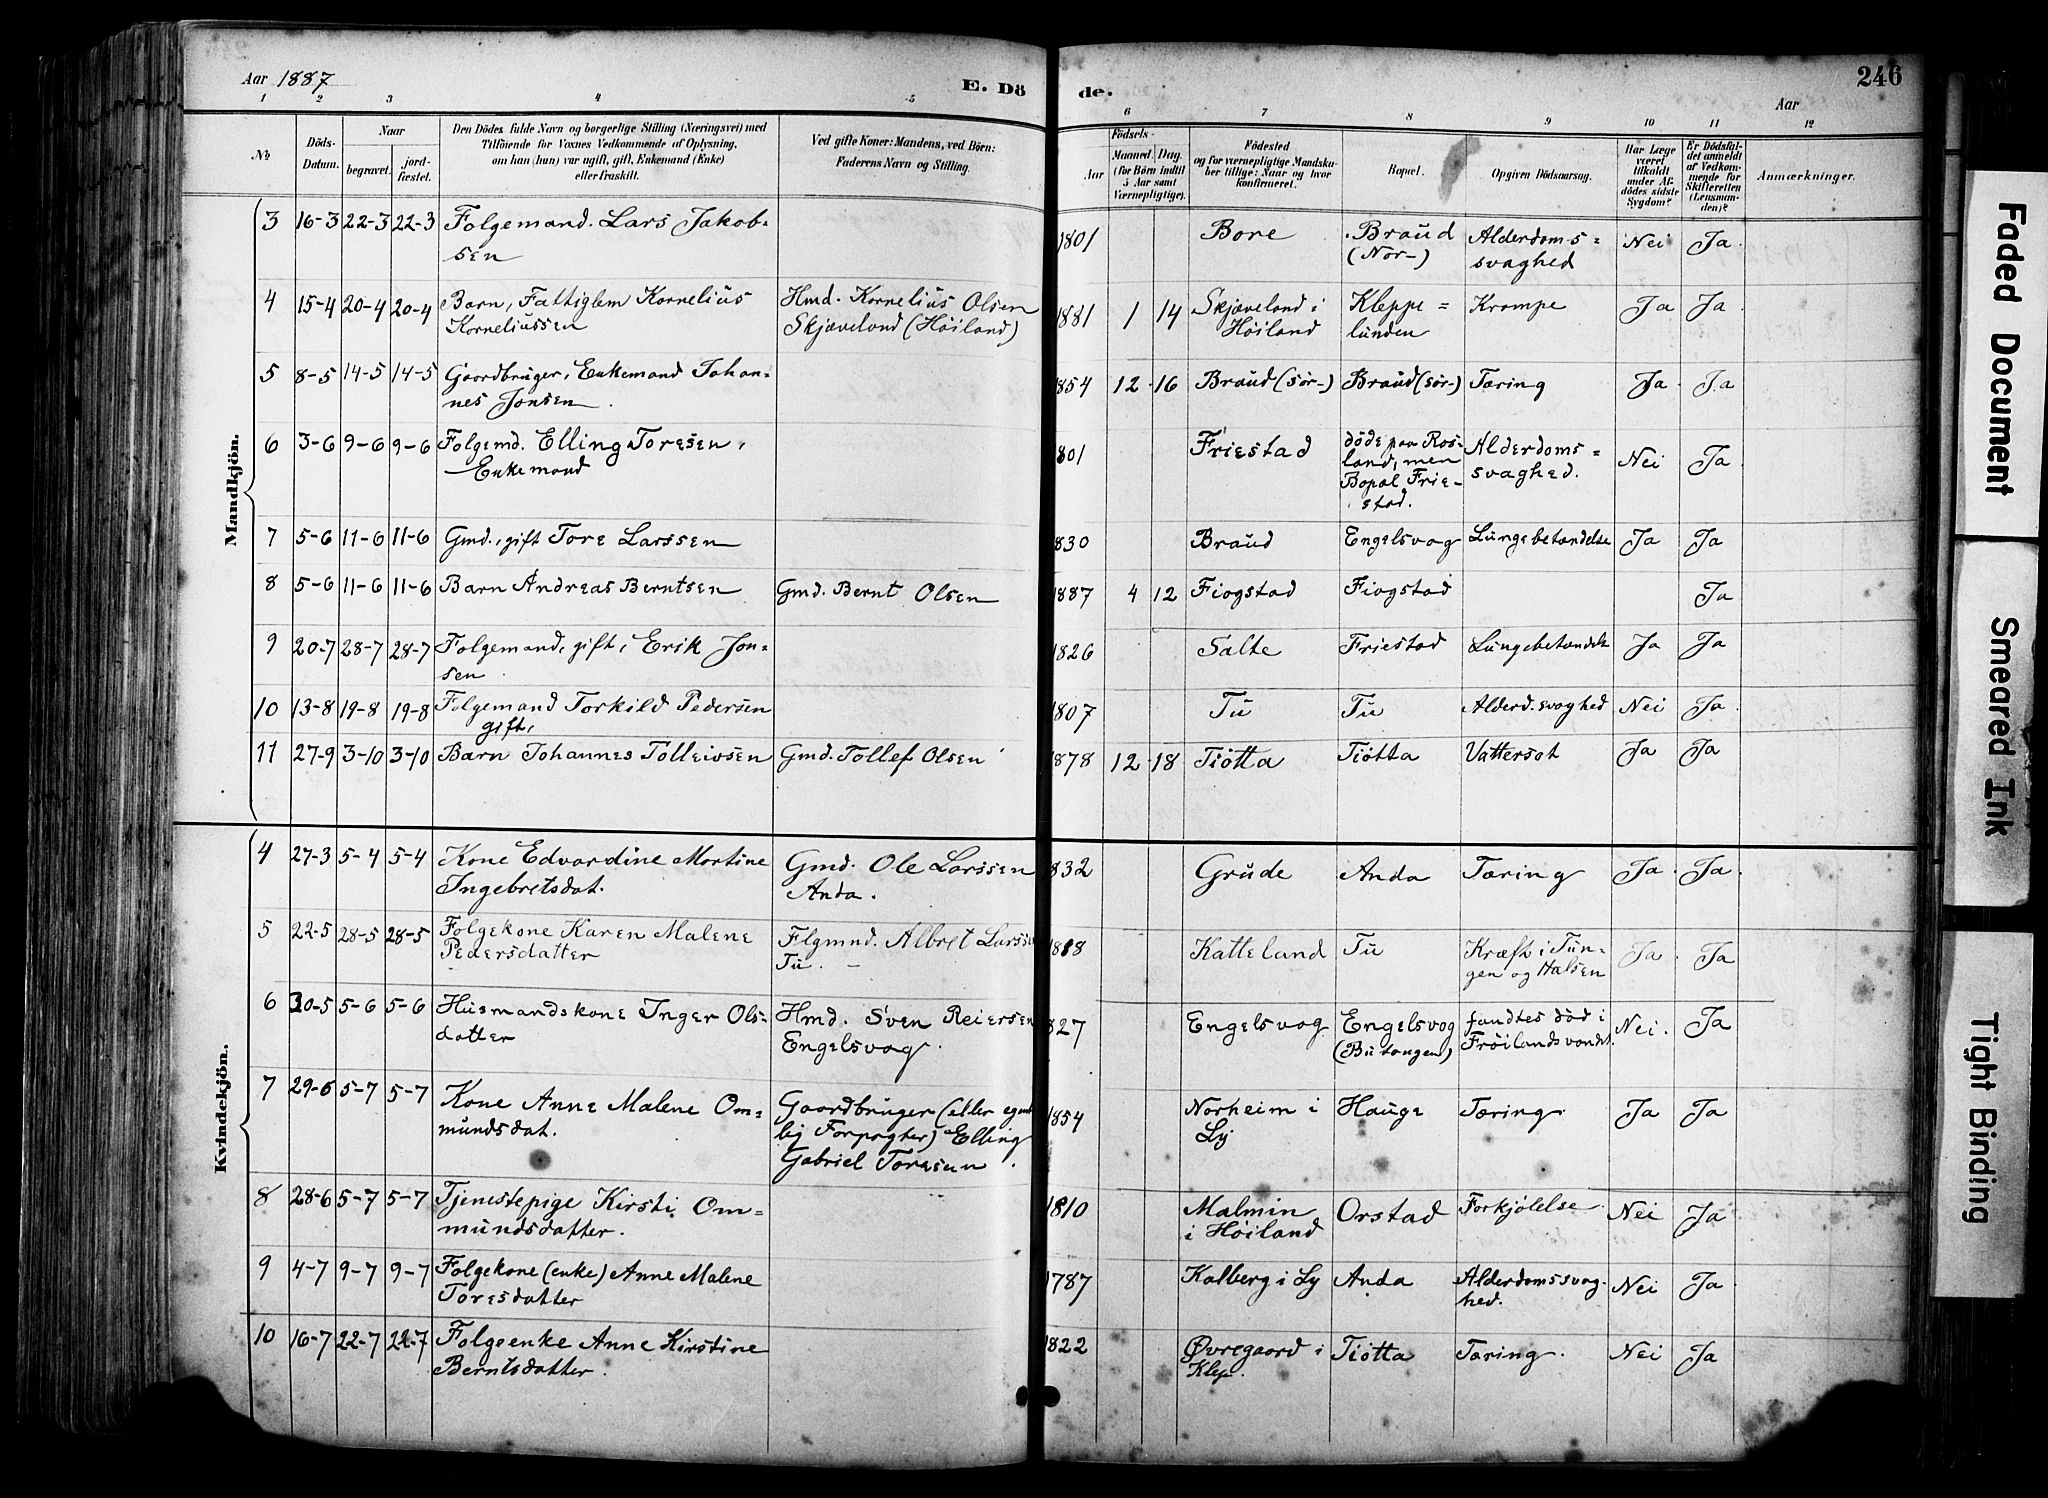 Aar 1887
E. Dö
de.
246
Aar
1 2 3 4 5
6 7 8 9 10 11 12
No
Döds-
Datum.
Naar
begravet.
jord-
fæstet.
Den Dödes fulde Navn og borgerlige Stilling (Næringsvei) med
Tilföiende for Voxnes Vedkommende af Oplysning,
om han (hun) var ugift, gift, Enkemand (Enke)
eller fraskilt.
Ved gifte Koner: Mandens, ved Börn:
Faderens Navn og Stilling.
Födsels-
Aar
Maaned. Dag.
(for Börn indtil
5 Aar samt
Værnepligtige).
Födested
og for værnepligtige Mandska-
ber tillige: Naar og hvor
konfirmeret.
Bopæl.
Opgiven Dödsaarsag.
Har Læge
været
tilkaldt
under Af-
dödes sidste
Sygdom?
Er Dödsfal-
det anmeldt
af Vedkom-
mende for
Skifteretten
(Lensman-
den)?
Anmærkninger.
Mandkjön.
3 16-3 22-3 22-3 Folgemand. Lars Jakob- 1801 Bore Braud Alderdoms= Nei Ja
sen (Nor-) svaghed
4 15-4 20-4 20-4 Barn, Fattiglem Kornelius Hmd. Kornelius Olsen 1881 1 14 Skjæveland i Kleppe= Krampe Ja Ja
Korneliussen Skjæveland (Høiland) Høiland lunden
5 8-5 14-5 14-5 Gaardbruger, Enkemand Johan- 1854 12 16 Braud (sør-) Braud (sør-) Tæring Ja Ja
nes Jonsen.
6 3-6 9-6 9-6 Folgemd. Elling Toresen, 801 Friestad døde paa Ros- Alderdoms= Nei Ja
Enkemand land, men svaghed.
Bopæl Frie-
stad.
7 5-6 11-6 11-6 Gmd., gift Tore Larssen 830 Braud Engelsvag Lungebetændelse Ja Ja
8 5-6 11-6 11-6 Barn Andreas Berntsen Gmd. Bernt Olsen 1887 4 12 Fiogstad Fiogstad Ja
9 20-7 28-7 28-7 Folgemand, gift, Erik Jon- 1826 Salte Friestad Lungebetændelse Ja Ja
sen.
10 13-8 19-8 19-8 Folgemand Torkild Pedersen 1807 Tu Tu Alderd.svaghed Nei Ja
gift,
11 27-9 3-10 3-10 Barn Johannes Tolleivsen Gmd. Tollef Olsen 1878 12 18 Tiøtta Tiøtta Vattersot Ja Ja
Kvindekjön.
4 27-3 5-4 5-4 Kone Edvardine Martine Gmd. Ole Larssen 832 Grude Anda Tæring Ja Ja
Ingebretsdat. Anda.
5 22-5 28-5 28-5 Folgekone Karen Malene Flgmnd. Albret Larssen 1818 Katteland Tu Kræft i Tun- Ja Ja
Pedersdatter Tu. gen og Halsen
6 30-5 5-6 5-6 Husmandskone Inger Ols- Hmd. Sven Reiersen 827 Engelsvag Engelsvag fandtes död i Nei. Ja
datter Engelsvag. (Butangen) Frøilandsvandet.
7 29-6 5-7 5-7 Kone Anne Malene Om= Gaardbruger (eller egent 1854 Norheim i Hauge Tæring Ja Ja
mundsdat. lig Forpagter) Elling Ly
Gabriel Toresen.
8 28-6 5-7 5-7 Tjenestepige Kirsti Om= 1810 Malmin Orstad Forkjølelse Nei Ja
mundsdatter. i Høiland
9 4-7 9-7 9-7 Folgekone (enke) Anne Malene 1787 Kalberg i Ly Anda Alderdomssvag- Nei Ja
Toresdatter hed.
10 16-7 22-7 22-7 Folgeenke Anne Kirstine 1822 Øvregaard i Tiøtta Tæring. Nei Ja
Berntsdatter. Klep.
Faded Document
Smeared Ink
Tight Binding